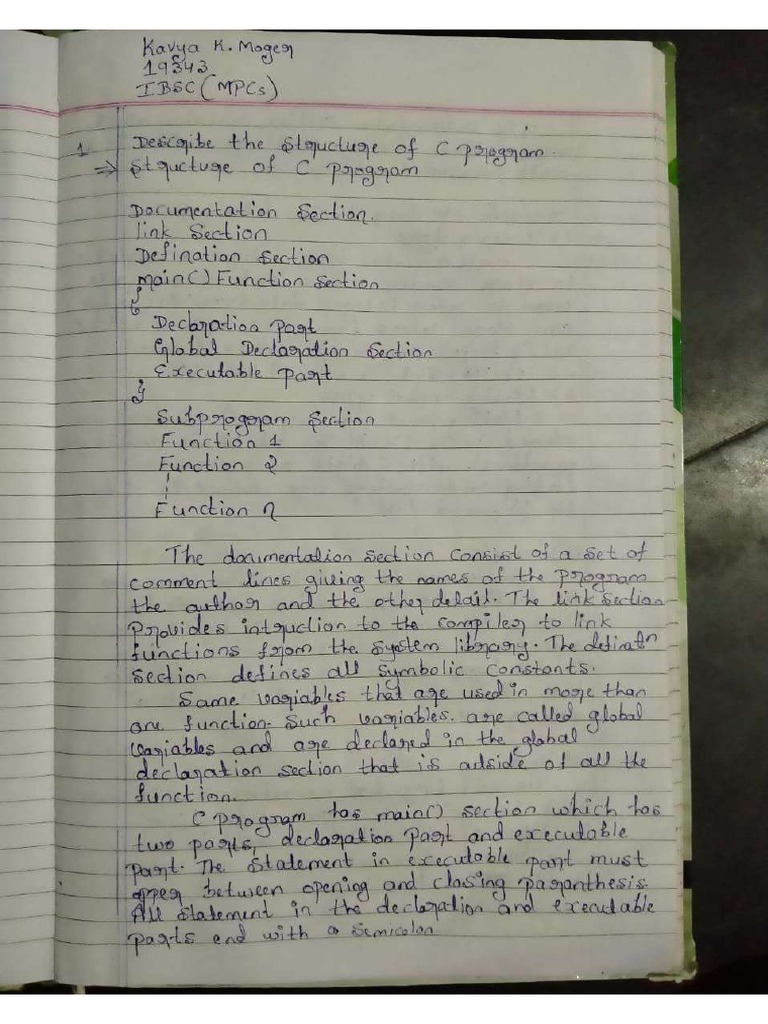 Kavya K. Moger
19343
IBSC (MPCs)
1 Describe the structure of C program.
⇒ Structure of C program
Documentation Section.
link Section
Defination Section
main() Function Section
{
Declaration Part
Global Declaration Section
Executable Part
}
Subprogram Section
Function 1
Function 2
Function n
The documentation section consist of a set of
comment lines giving the names of the program
the author and the other detail. The link section
Provides intruction to the compiler to link
functions from the system library. The definatn
section defines all symbolic constants.
Same variables that are used in more than
one function. Such variables. are called global
variables and are declared in the global
declaration section that is outside of all the
function.
C program has main() section which has
two parts, declaration Part and executable
Part. The Statement in executable part must
apper between opening and closing paranthesis.
All statement in the declaration and executable
parts end with a semicolon